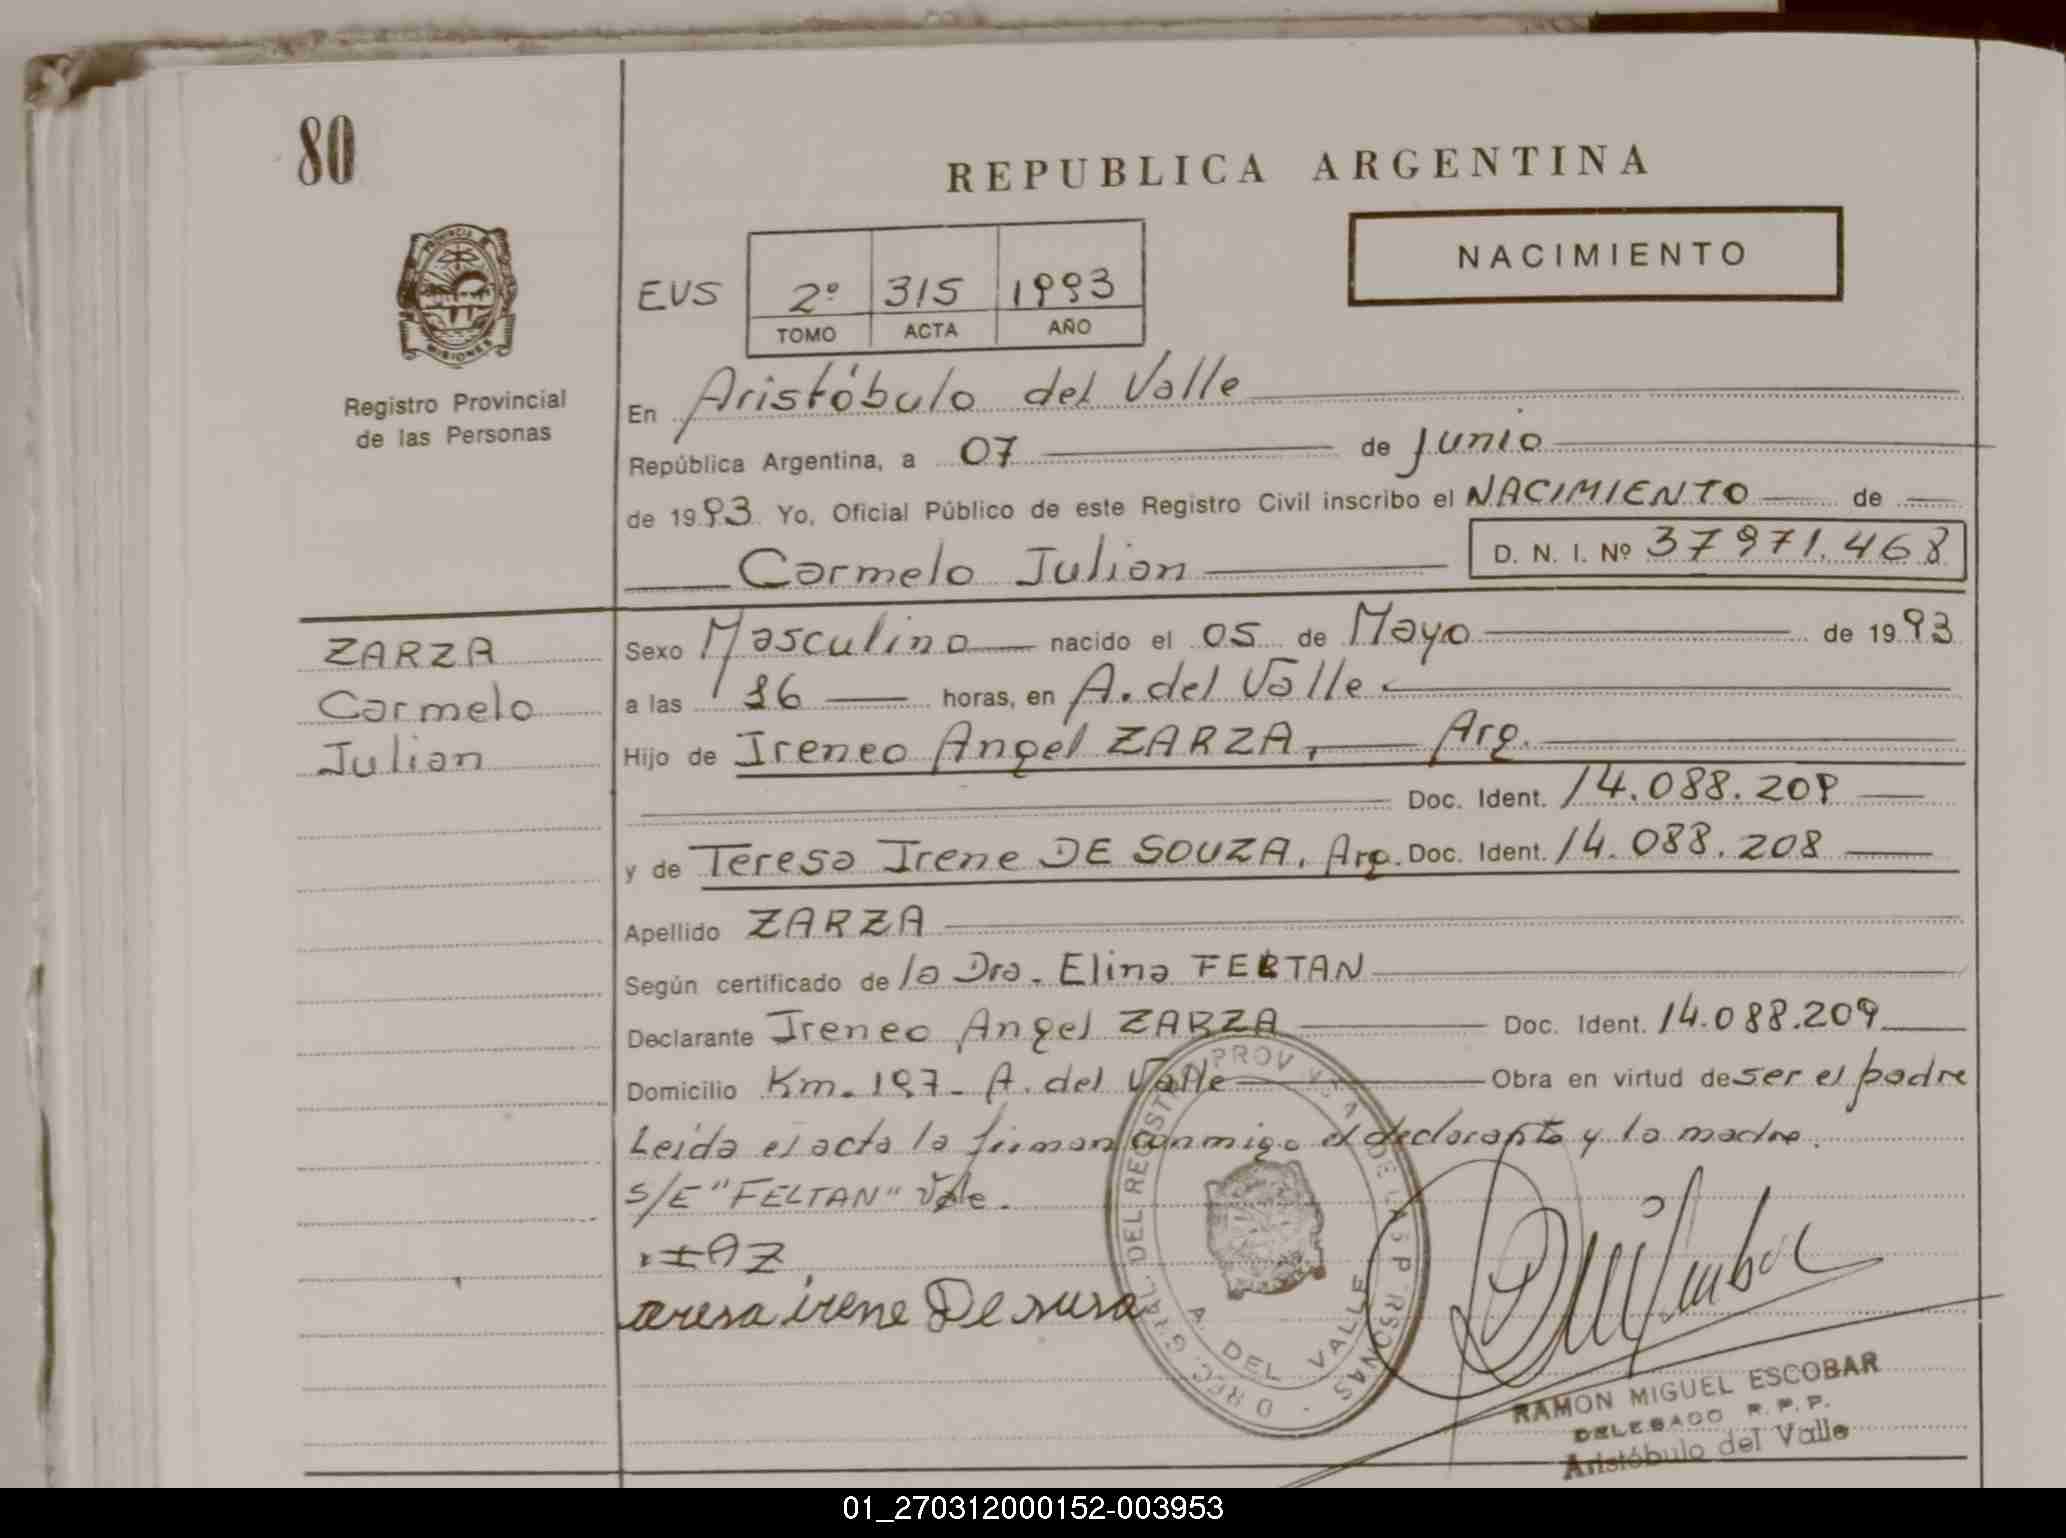 80
REPUBLICA ARGENTINA
NACIMIENTO
PROVINCIA
MISIONES
Registro Provincial
de las Personas
EVS 2º 315 1993
TOMO ACTA AÑO
En Aristóbulo del Valle
República Argentina, a 07 de Junio
de 1993 Yo, Oficial Público de este Registro Civil inscribo el NACIMIENTO de
Carmelo Julian D. N. I. Nº 37971.468
ZARZA
Carmelo
Julian
Sexo Masculino nacido el 05 de Mayo de 1993
a las 16 horas, en A. del Valle
Hijo de Ireneo Angel ZARZA, Arg.
Doc. Ident. 14.088.209
y de Teresa Irene DE SOUZA, Arg. Doc. Ident. 14.088.208
Apellido ZARZA
Según certificado de la Dra. Elina FELTAN
Declarante Ireneo Angel ZARZA Doc. Ident. 14.088.209
Domicilio Km. 197 - A. del Valle Obra en virtud de ser el padre
Leída el acta la firman conmigo el declarante y la madre.
S/E "FELTAN" Vale.
IAZ
teresa irene De susa
A DEL VALLE
RAMON MIGUEL ESCOBAR
DELEGADO R. P. P.
Aristóbulo del Valle
01_270312000152-003953